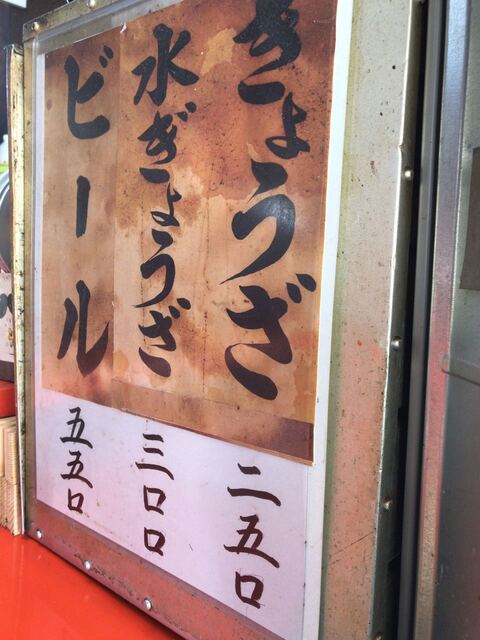 ぎょうざ 二五〇
水ぎょうざ 三〇〇
ビール 五五〇